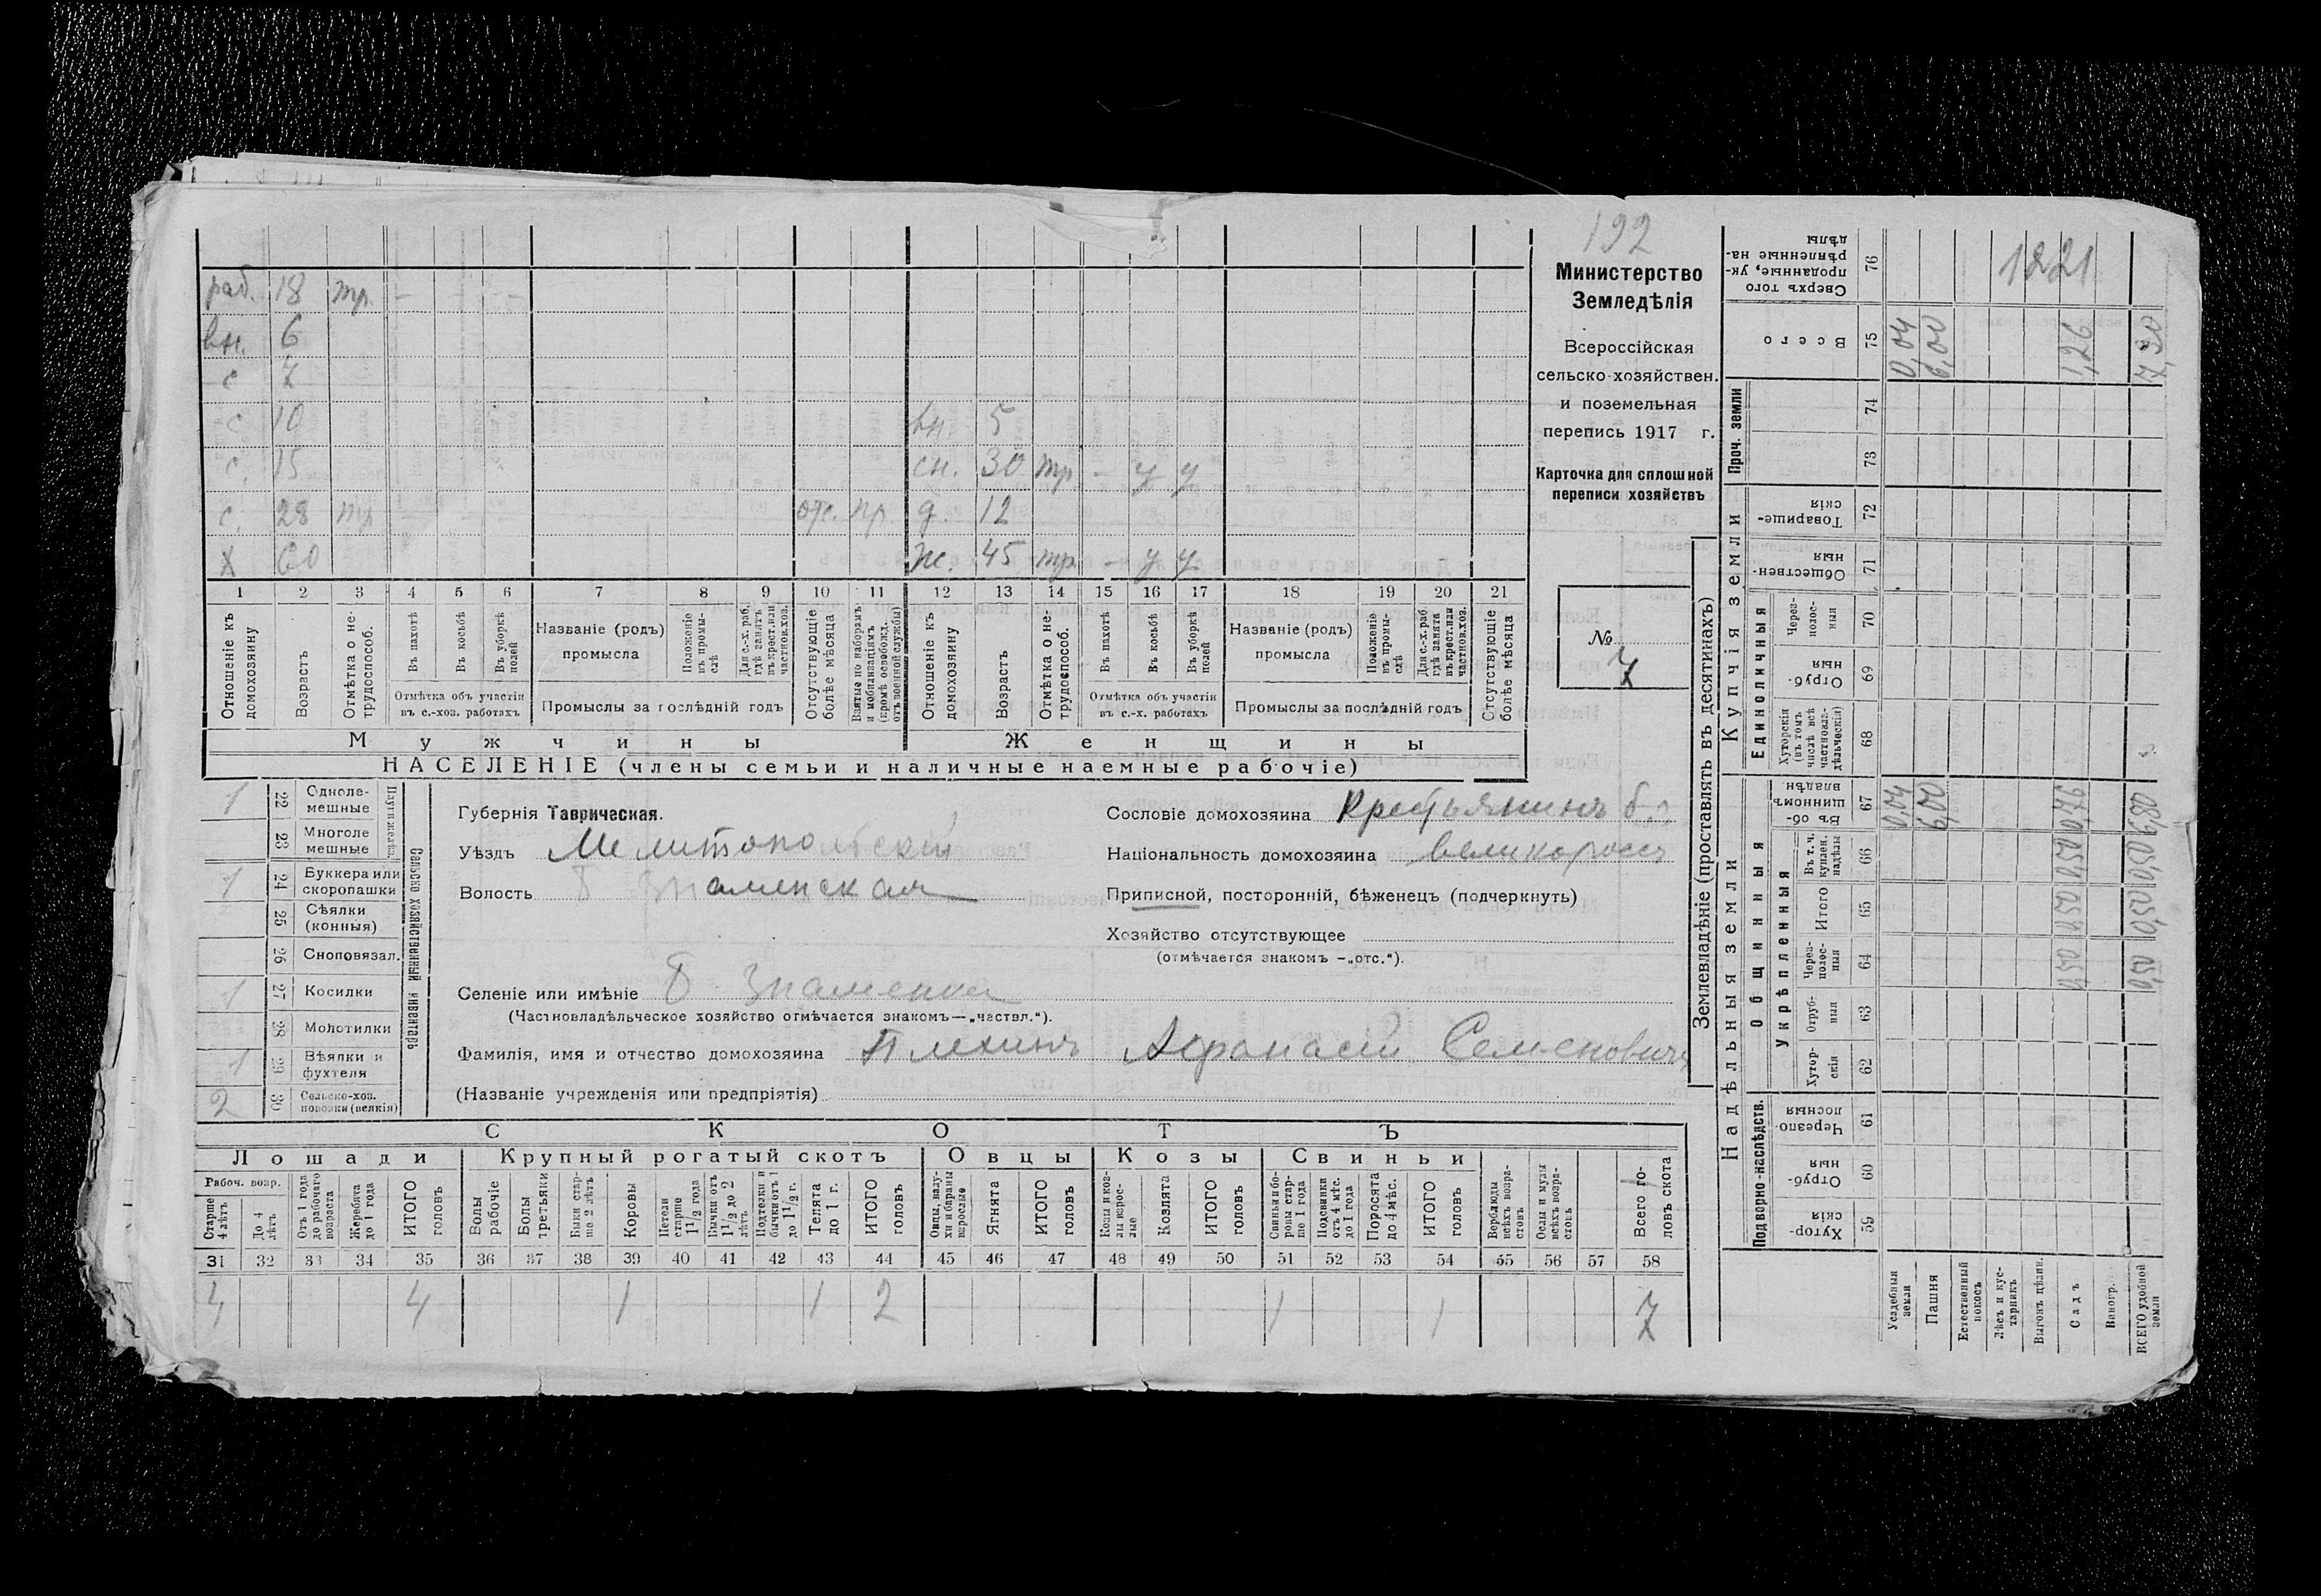 192
Министерство
Земледѣлія
Всероссійская
сельско-хозяйствен.
и поземельная
перепись 1917 г.
Карточка для сплошной
переписи хозяйствъ
№
7
раб. 18 тр. - -
вн. 6
с 7
с 10 вн. 5
с. 15 сн. 30 тр - у у
с. 28 тр отс. пр д. 12
х 60 ж. 45 тр. - у у
1 2 3 4 5 6 7 8 9 10 11 12 13 14 15 16 17 18 19 20 21
Отношеніе къ домохозяину
Возрастъ
Отмѣтка о не-трудоспособ.
Въ пахотѣ
Въ косьбѣ
Въ уборкѣ полей
Отмѣтка объ участіи въ с.-хоз. работахъ
Названіе (родъ) промысла
Положеніе въ промы-слѣ
Для с.-х. раб. гдѣ занятъ въ крест. или частнов. хоз.
Промыслы за послѣдній годъ
Отсутствующіе болѣе мѣсяца
Взятые по наборамъ и мобилизаціямъ (кромѣ освобожд. отъ военной службы)
Отношеніе къ домохозяину
Возрастъ
Отмѣтка о не-трудоспособ.
Въ пахотѣ
Въ косьбѣ
Въ уборкѣ полей
Отмѣтка объ участіи въ с.-х. работахъ
Названіе (родъ) промысла
Положеніе въ промы-слѣ
Для с.-х. раб. гдѣ занята въ крест. или частнов. хоз.
Промыслы за послѣдній годъ
Отсутствующіе болѣе мѣсяца
Мужчины Женщины
НАСЕЛЕНІЕ (члены семьи и наличные наемные рабочіе)
Сельско хозяйственный инвентарь
1 22 Одноле-мешные
23 Многоле мешные
1 24 Буккера или скоропашки
25 Сѣялки (конныя)
26 Сноповязал.
1 27 Косилки
28 Молотилки
1 29 Вѣялки и фухтеля
2 30 Сельско-хоз. повозки (всякія)
Губернія Таврическая.
Уѣздъ Мелитопольскій
Волость Б Знаменская
Сословіе домохозяина Крестьянинъ б.
Національность домохозяина великороссъ
Приписной, посторонній, бѣженецъ (подчеркнуть)
Хозяйство отсутствующее
(отмѣчается знакомъ —„отс.“).
Селеніе или имѣніе Б Знаменка
(Частновладѣльческое хозяйство отмѣчается знакомъ—„частвл.“).
Фамилія, имя и отчество домохозяина Плехинъ Афонасій Семеновичъ
(Названіе учрежденія или предпріятія)
СКОТЪ
Лошади Крупный рогатый скотъ Овцы Козы Свиньи
Рабоч. возр.
Старше 4 лѣтъ
До 4 лѣтъ
Отъ 1 года до рабочаго возраста
Жеребята до 1 года
ИТОГО головъ
Волы рабочіе
Волы третьяки
Быки стар-ше 2 лѣтъ
Коровы
Нетели старше 1 1/2 года
Бычки отъ 1 1/2 до 2 лѣтъ
Подтелки и бычки отъ 1 до 1 1/2 г.
Телята до 1 г.
ИТОГО головъ
Овцы, валу-хи и бараны взрослые
Ягнята
ИТОГО головъ
Козы и коз-лы взрос-лые
Козлята
ИТОГО головъ
Свиньи и бо-ровы стар-ше 1 года
Подсвинки отъ 4 мѣс. до 1 года
Поросята до 4 мѣс.
ИТОГО головъ
Верблюды всѣхъ возра-стовъ
Ослы и мулы всѣхъ возра-стовъ
Всего го-ловъ скота
31 32 33 34 35 36 37 38 39 40 41 42 43 44 45 46 47 48 49 50 51 52 53 54 55 56 57 58
4 4 1 1 2 1 1 7
Землевладѣніе (проставлять въ десятинахъ)
Надѣльныя земли Купчія земли Проч. земли
Подворно-наслѣдств.
Общинныя
Укрѣпленныя
Единоличныя
Сверхъ того проданные, ук-рѣпленные на-дѣлы 76 1221
Всего 75 0,04 6,00 1,26 7,30
74
73
Товарище-скія 72
Обществен-ныя 71
Через-полос-ныя 70
Отруб-ныя 69
Хуторскія (въ томъ числѣ всѣ частновла-дѣльческія) 68
Въ об-щинномъ владѣн. 67 0,04 6,00 0,76 6,80
Въ т. ч. куплен. надѣлы 66 0,50 0,50
Итого 65 0,50 0,50
Через-полос-ныя 64 0,50 0,50
Отруб-ныя 63
Хутор-скія 62
Черезпо-лосныя 61
Отруб-ныя 60
Хутор-скія 59
Усадебныя земли
Пашня
Естественный покосъ
Лѣсъ и кус-тарникъ
Выгонъ цѣлин.
Садъ
Виногр.
ВСЕГО удобной земли